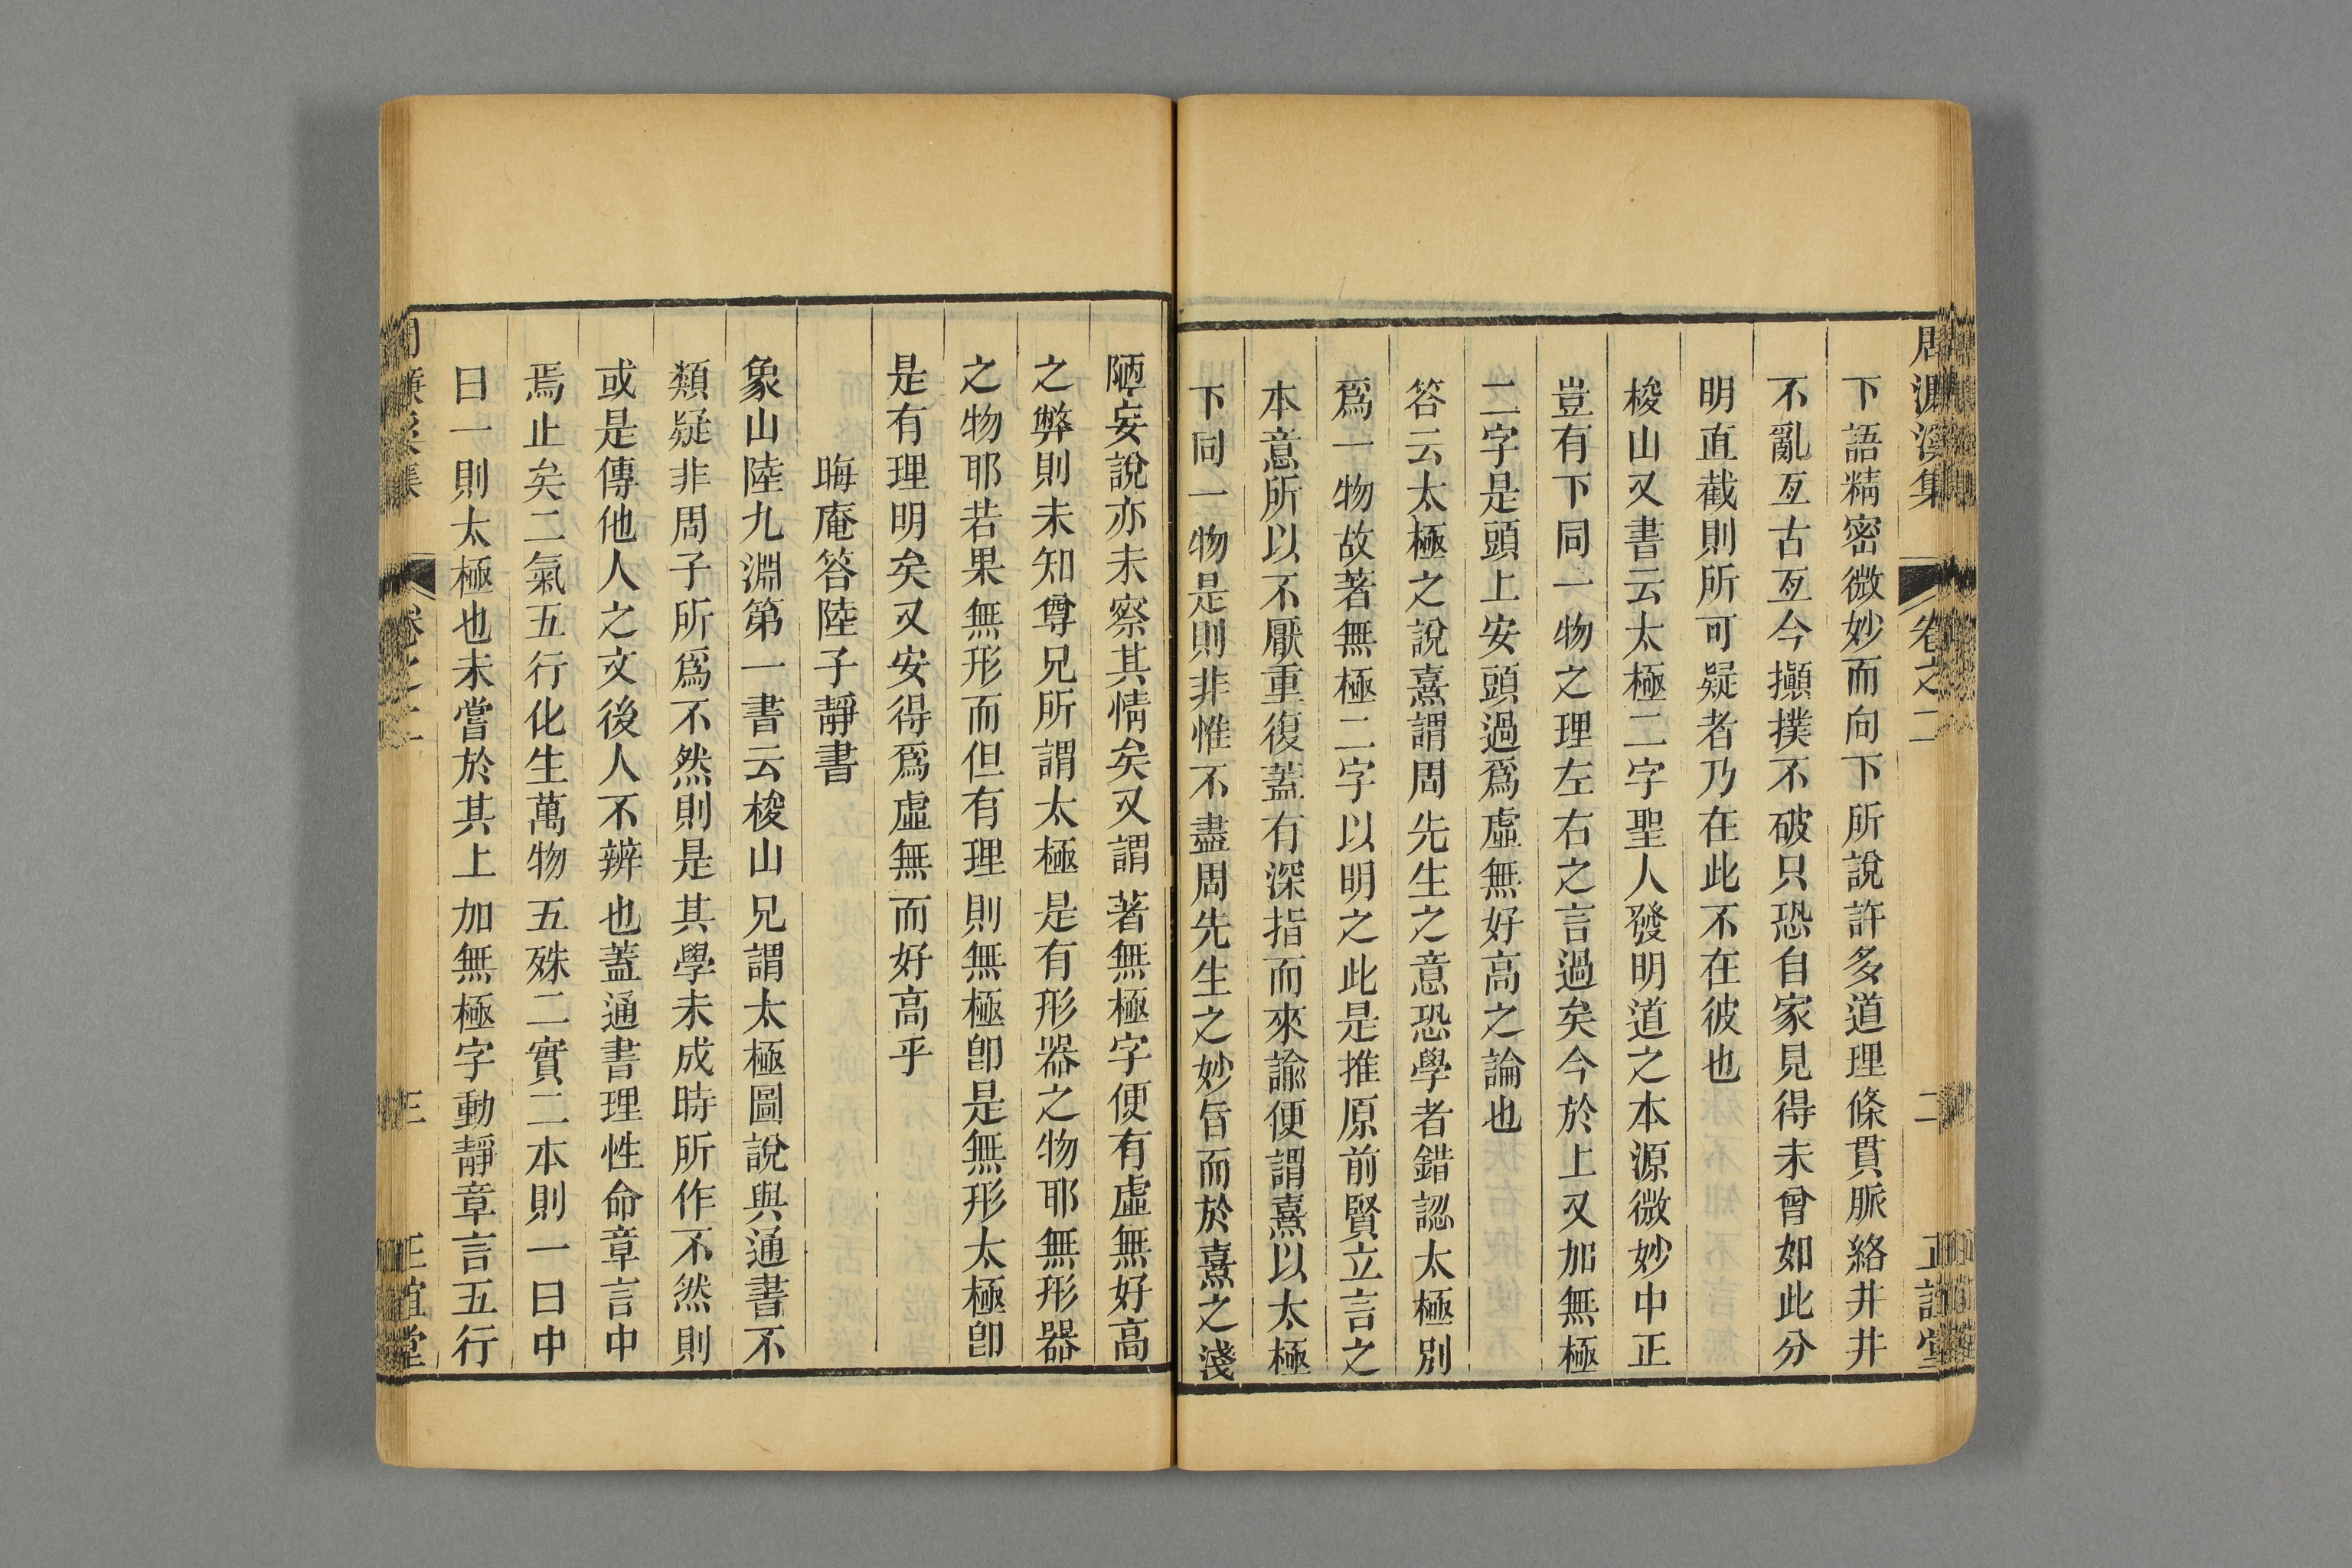 周濂溪集 卷之二 二 正誼堂
下語精密微妙而向下所說許多道理條貫脈絡井井
不亂亙古亙今攧撲不破只恐自家見得未曾如此分
明直截則所可疑者乃在此不在彼也
梭山又書云太極二字聖人發明道之本源微妙中正
豈有下同一物之理左右之言過矣今於上又加無極
二字是頭上安頭過爲虛無好高之論也
答云太極之說熹謂周先生之意恐學者錯認太極別
爲一物故著無極二字以明之此是推原前賢立言之
本意所以不厭重復蓋有深指而來諭便謂熹以太極
下同一物是則非惟不盡周先生之妙旨而於熹之淺
陋妄說亦未察其情矣又謂著無極字便有虛無好高
之弊則未知尊兄所謂太極是有形器之物耶無形器
之物耶若果無形而但有理則無極卽是無形太極卽
是有理明矣又安得爲虛無而好高乎
晦庵答陸子靜書
象山陸九淵第一書云梭山兄謂太極圖說與通書不
類疑非周子所爲不然則是其學未成時所作不然則
或是傳他人之文後人不辨也蓋通書理性命章言中
焉止矣二氣五行化生萬物五殊二實二本則一曰中
曰一則太極也未嘗於其上加無極字動靜章言五行
集 卷之二 三 正誼堂